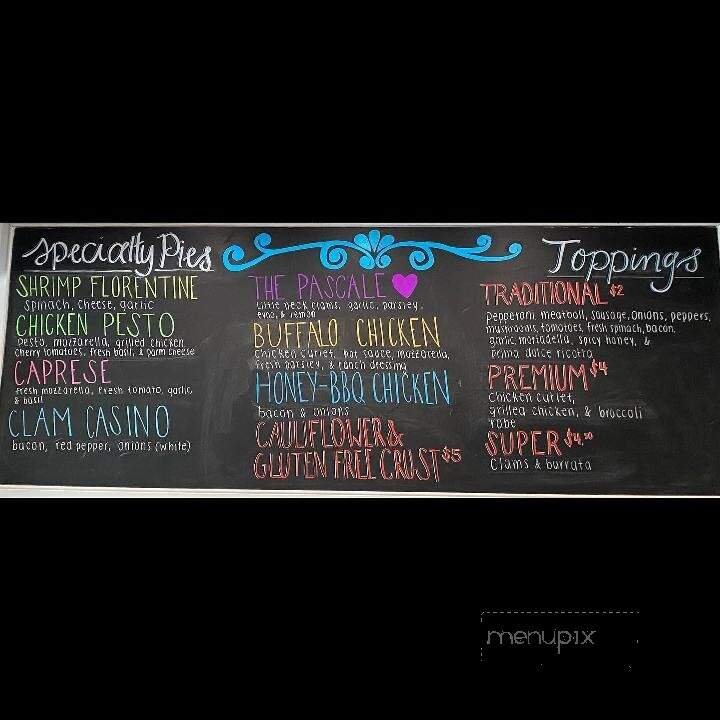 Specialty Pies
SHRIMP FLORENTINE
spinach, cheese, garlic
CHICKEN PESTO
pesto, mozzarella, grilled chicken,
cherry tomatoes, fresh basil, & parm cheese
CAPRESE
fresh mozzarella, fresh tomato, garlic,
& basil
CLAM CASINO
bacon, red pepper, onions (white)
THE PASCALE
little neck clams, garlic, parsley,
evoo, & lemon
BUFFALO CHICKEN
chicken cutlet, hot sauce, mozzarella,
fresh parsley, & ranch dressing
HONEY-BBQ CHICKEN
bacon & onions
CAULIFLOWER &
GLUTEN FREE CRUST $5
Toppings
TRADITIONAL $2
pepperoni, meatball, sausage, onions, peppers,
mushrooms, tomatoes, fresh spinach, bacon,
garlic, spicy honey, &
prima dolce ricotta
PREMIUM $4
chicken cutlet,
grilled chicken, & broccoli
rabe
SUPER $4.50
clams & burrata
menupix